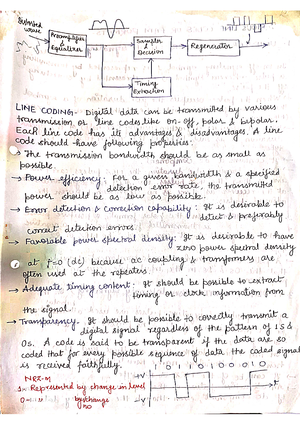 Distorted
wave
Preamplifier
& Equalizer
Sampler
&
Decision
Regenerator
Timing
Extraction
LINE CODING:- Digital data can be transmitted by various
transmission or line codes like on-off, polar & bipolar.
Each line code has its advantages & disadvantages. A line
code should have following properties:
→ The transmission bandwidth should be as small as
possible.
→ Power efficiency: For a given bandwidth & a specified
detection error rate, the transmitted
power should be as low as possible.
→ Error detection & correction capability: It is desirable to
detect & preferably
correct detection errors.
→ Favorable power spectral density: It is desirable to have
zero power spectral density
at f=0 (dc) because ac coupling & transformers are
often used at the repeaters.
→ Adequate timing content: It should be possible to extract
timing or clock information from
the signal.
→ Transparency: It should be possible to correctly transmit a
digital signal regardless of the pattern of 1s &
0s. A code is said to be transparent if the data are so
coded that for every possible sequence of data the coded signal
is received faithfully.
NRZ-M
1- Represented by change in level
0- " by change
no
+V
-V
t